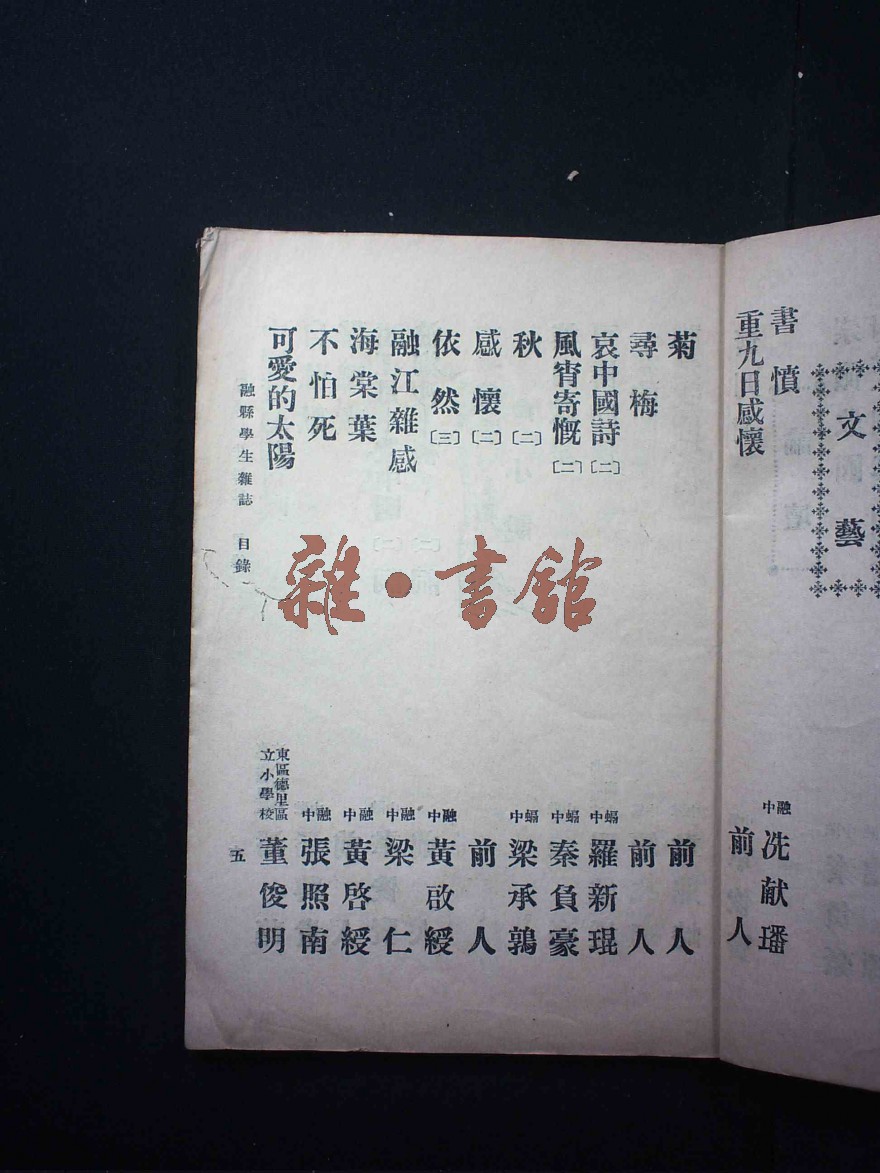 文藝
書憤 融中 冼献璠
重九日感懷 前人
菊 前人
尋梅 前人
哀中國詩〔二〕 融中 羅新琨
風宵寄慨〔二〕 融中 秦負豪
秋〔二〕 融中 梁承鶉
感懷〔二〕 前人
依然〔三〕 融中 黃啟綬
融江雜感 融中 梁仁
海棠葉 融中 黃啓綬
不怕死 融中 張照南
可愛的太陽 東區德里區立小學校 董俊明
融縣學生雜誌 目錄 五
雜·書館